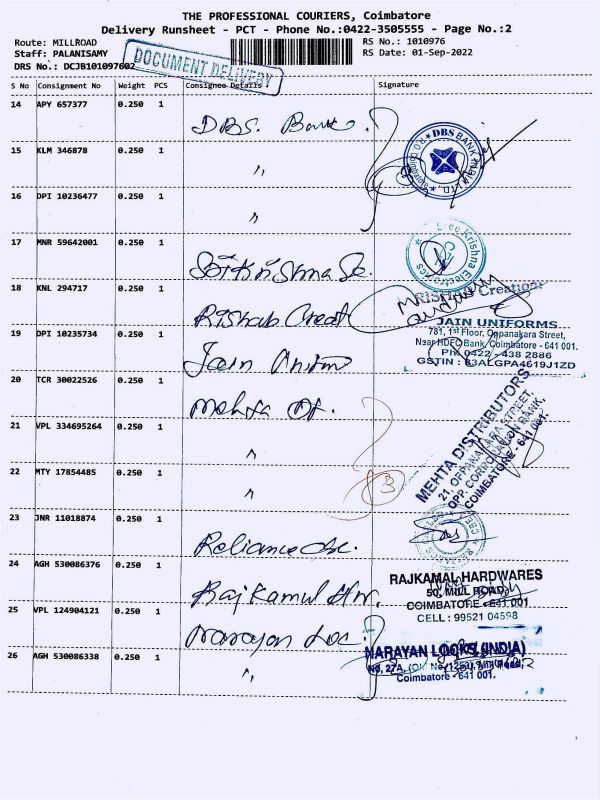 THE PROFESSIONAL COURIERS, Coimbatore
Delivery Runsheet - PCT - Phone No.:0422-3505555 - Page No.:2
Route: MILLROAD
RS No.: 1010976
Staff: PALANISAMY
RS Date: 01-Sep-2022
DRS No.: DCJB101097602
DOCUMENT DELIVERY
S No Consignment No Weight PCS Consignee Details Signature
14 APY 657377 0.250 1 DBS. Bank
DBS BANK INDIA LTD.
15 KLM 346878 0.250 1 "
16 DPI 10236477 0.250 1 "
17 MNR 59642001 0.250 1 Sri Krishna Ele.
Sree Krishna Electronics
18 KNL 294717 0.250 1 Rishab Creat
RISHAB Creation
19 DPI 10235734 0.250 1 Jain Uniform
JAIN UNIFORMS
781, 1st Floor, Oppanakara Street,
Near HDFC Bank, Coimbatore - 641 001.
Ph: 0422 - 438 2886
GSTIN : 33ALGPA4619J1ZD
20 TCR 30022526 0.250 1 Mehta Dt.
MEHTA DISTRIBUTORS
21, OPPANAKARA STREET,
OPP. CORPORATION BANK,
COIMBATORE - 641 001.
21 VPL 334695264 0.250 1 "
22 MTY 17854485 0.250 1 "
(3)
23 JNR 11018874 0.250 1 Reliance
24 AGH 530086376 0.250 1 Rajkamal Hw.
RAJKAMAL HARDWARES
50, MILL ROAD,
COIMBATORE - 641 001
CELL : 99521 04598
25 VPL 124904121 0.250 1 Narayan Loc
NARAYAN LOCKS (INDIA)
No, 27A, (Old No. 1253), Mill Road,
Coimbatore - 641 001.
26 AGH 530086338 0.250 1 "